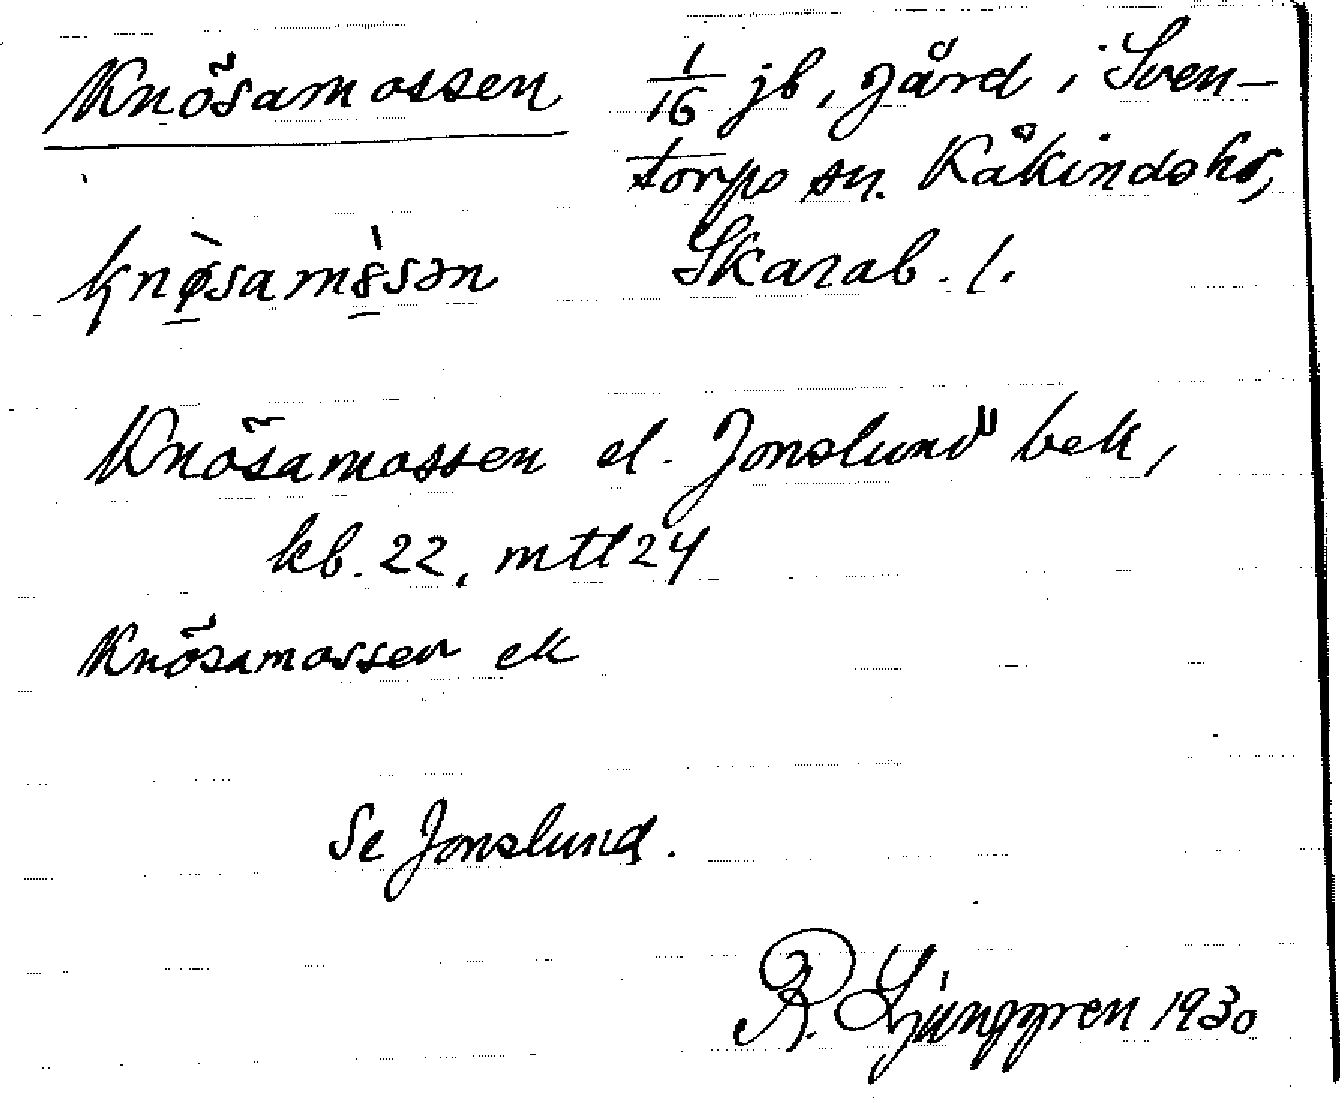 Knösamossen 1/16 jb, gård i Sven-
torps sn. Kåkinds hd,
Skarab. l.
Knösamossen el. Jonslund bek,
kb. 22, mtl 24
Knösamossen ek
Se Jonslund.
R. Ljunggren 1930